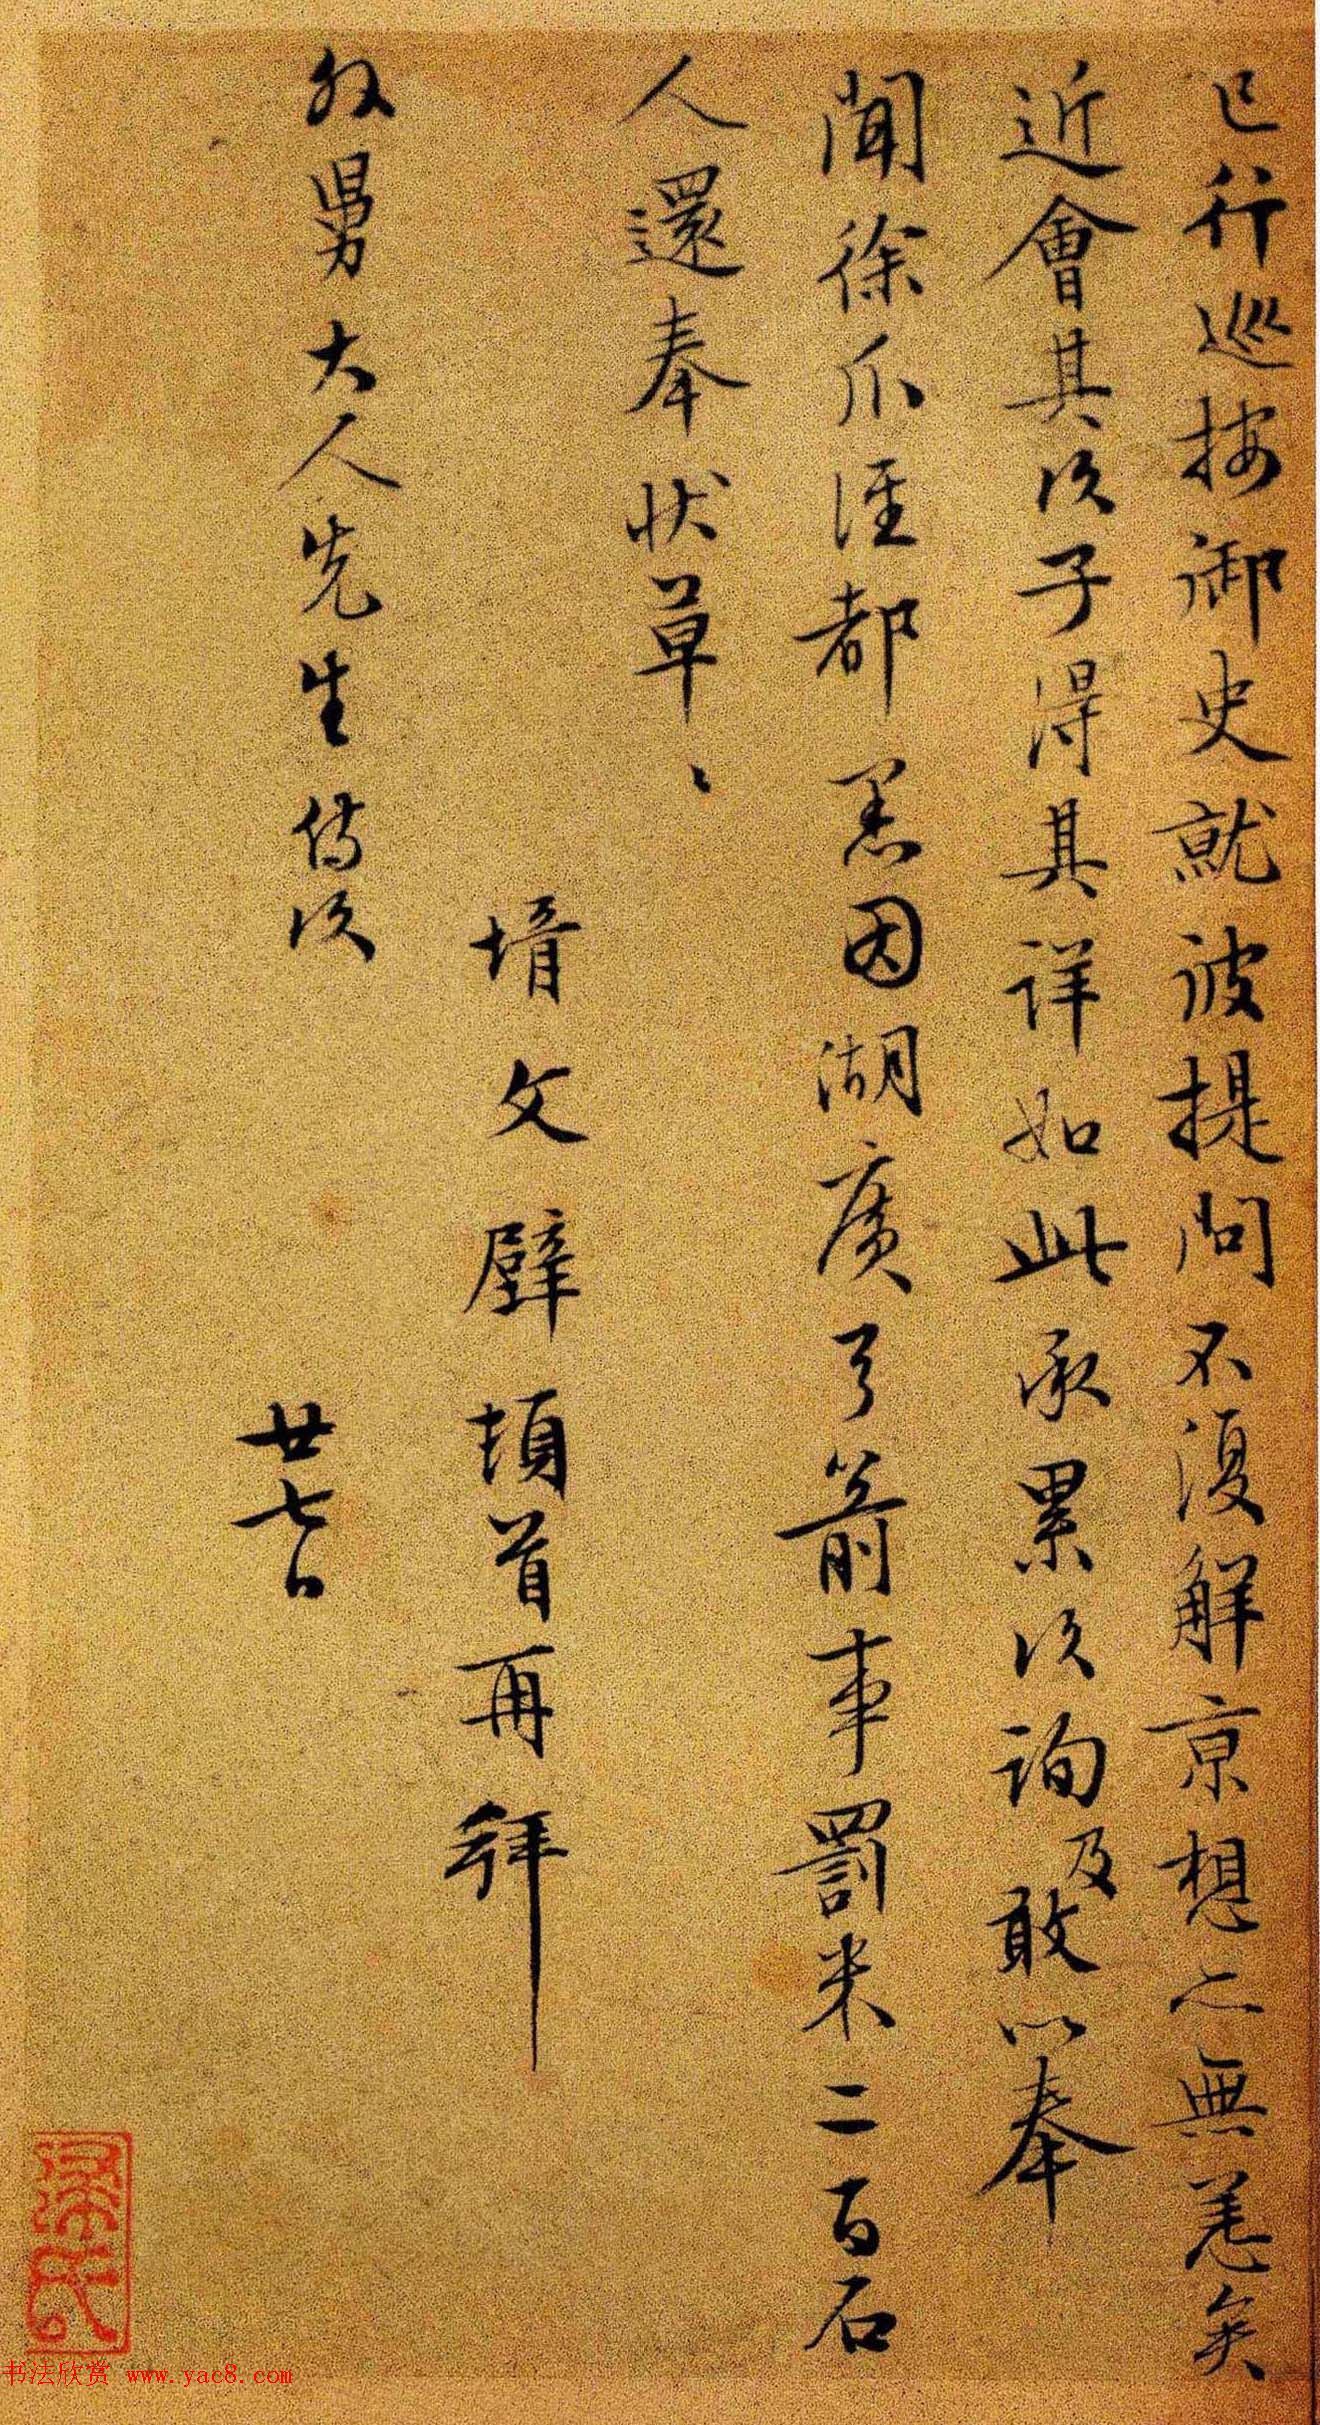 已行巡按御史就彼提問不復解京想亦無恙矣
近會其次子得其詳如此承累次詢及敢以奉
聞徐爪涇都憲因湖廣弓箭事罰米二百石
人還奉狀草〻
壻文璧頓首再拜
外舅大人先生侍次
廿七日
書法欣賞 www.yac8.com